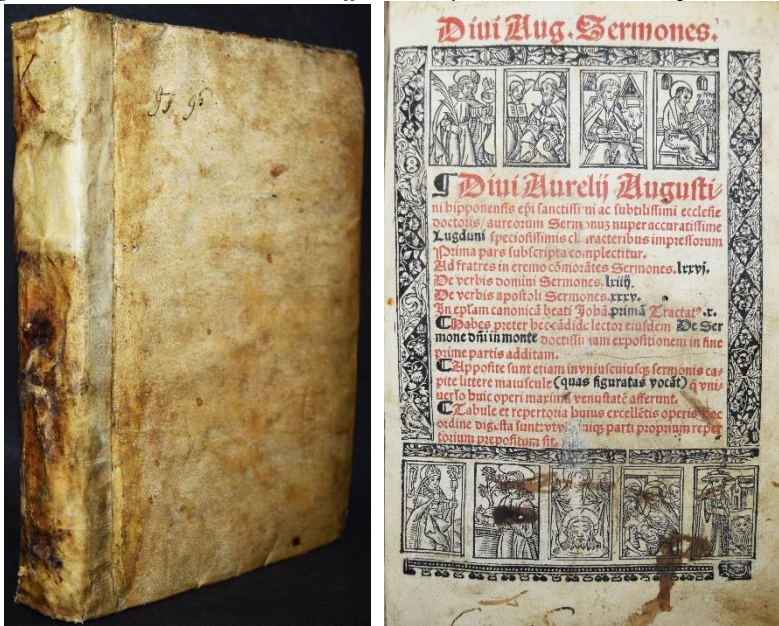 K
Divi Aug. Sermones.
¶ Divi Aurelij Augusti⸗
ni hipponensis epi sanctissimi ac subtilissimi ecclesie
doctoris/aureorum Sermonuz nuper accuratissime
Lugduni speciosissimis characteribus impressorum
Prima pars subscripta complectitur.
Ad fratres in eremo cõmorãtes Sermones. lxxvj.
De verbis domini Sermones. lxiiij.
De verbis apostoli Sermones. xxxv.
In eplam canonicã beati Johã. primã Tractat⁹ .x.
¶ Habes preter hec cãdide lector eiusdem De Ser
mone dñi in monte doctissimam expositionem in fine
prime partis additam.
¶ Apposite sunt etiam in vniuscuiusq; sermonis ca⸗
pite littere maiuscule (quas figuratas vocãt) q̃ vni⸗
uerso huic operi maximã venustatẽ afferunt.
¶ Tabule et repertoria huius excellẽtis operis hoc
ordine digesta sunt: vt vnicuiq; parti proprium reper
torium prepositum sit.